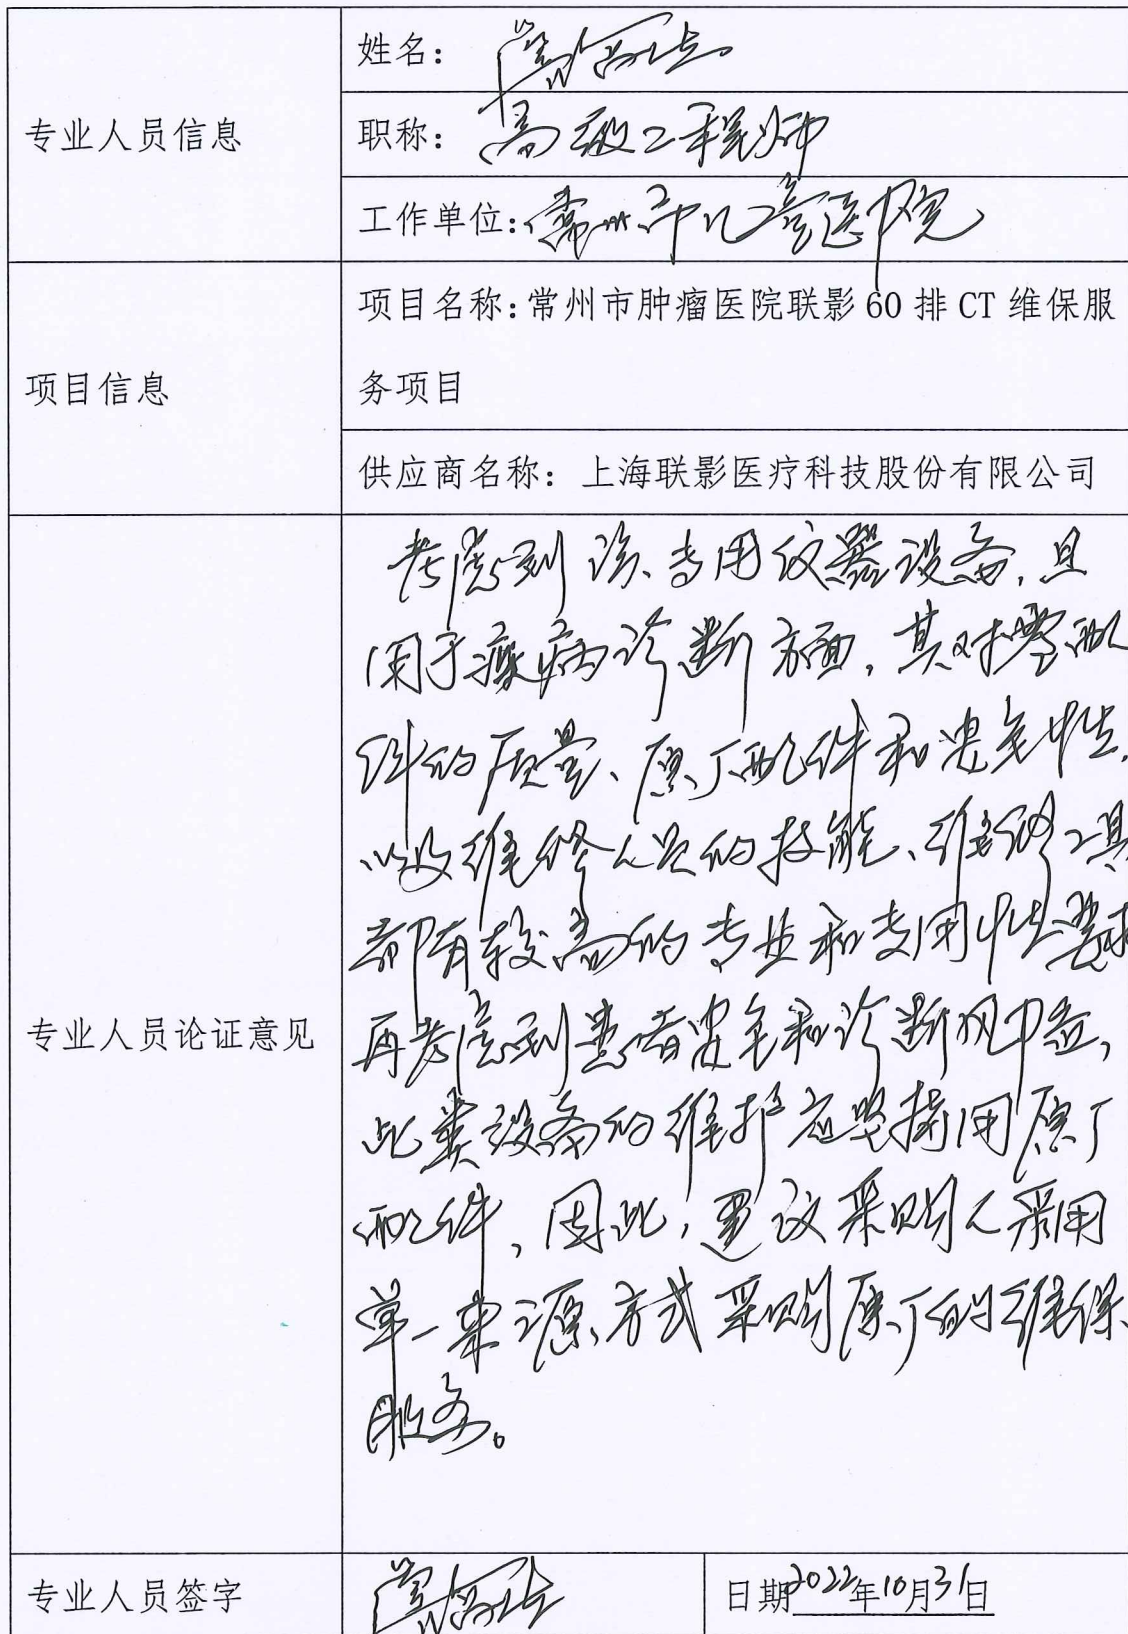 专业人员信息
姓名:
职称: 高级工程师
工作单位: 常州市儿童医院
项目信息
项目名称: 常州市肿瘤医院联影 60 排 CT 维保服
务项目
供应商名称: 上海联影医疗科技股份有限公司
专业人员论证意见
考虑到该专用仪器设备,且
用于疾病诊断方面,其对零配
件的质量、原厂配件和安全性,
以及维修人员的技能、维修工具
都有较高的专业和专用性要求
再考虑到患者安全和诊断风险,
此类设备的维护应坚持用原厂
配件,因此,建议采购人采用
单一来源方式采购原厂的维保
服务。
专业人员签字
日期2022年10月31日